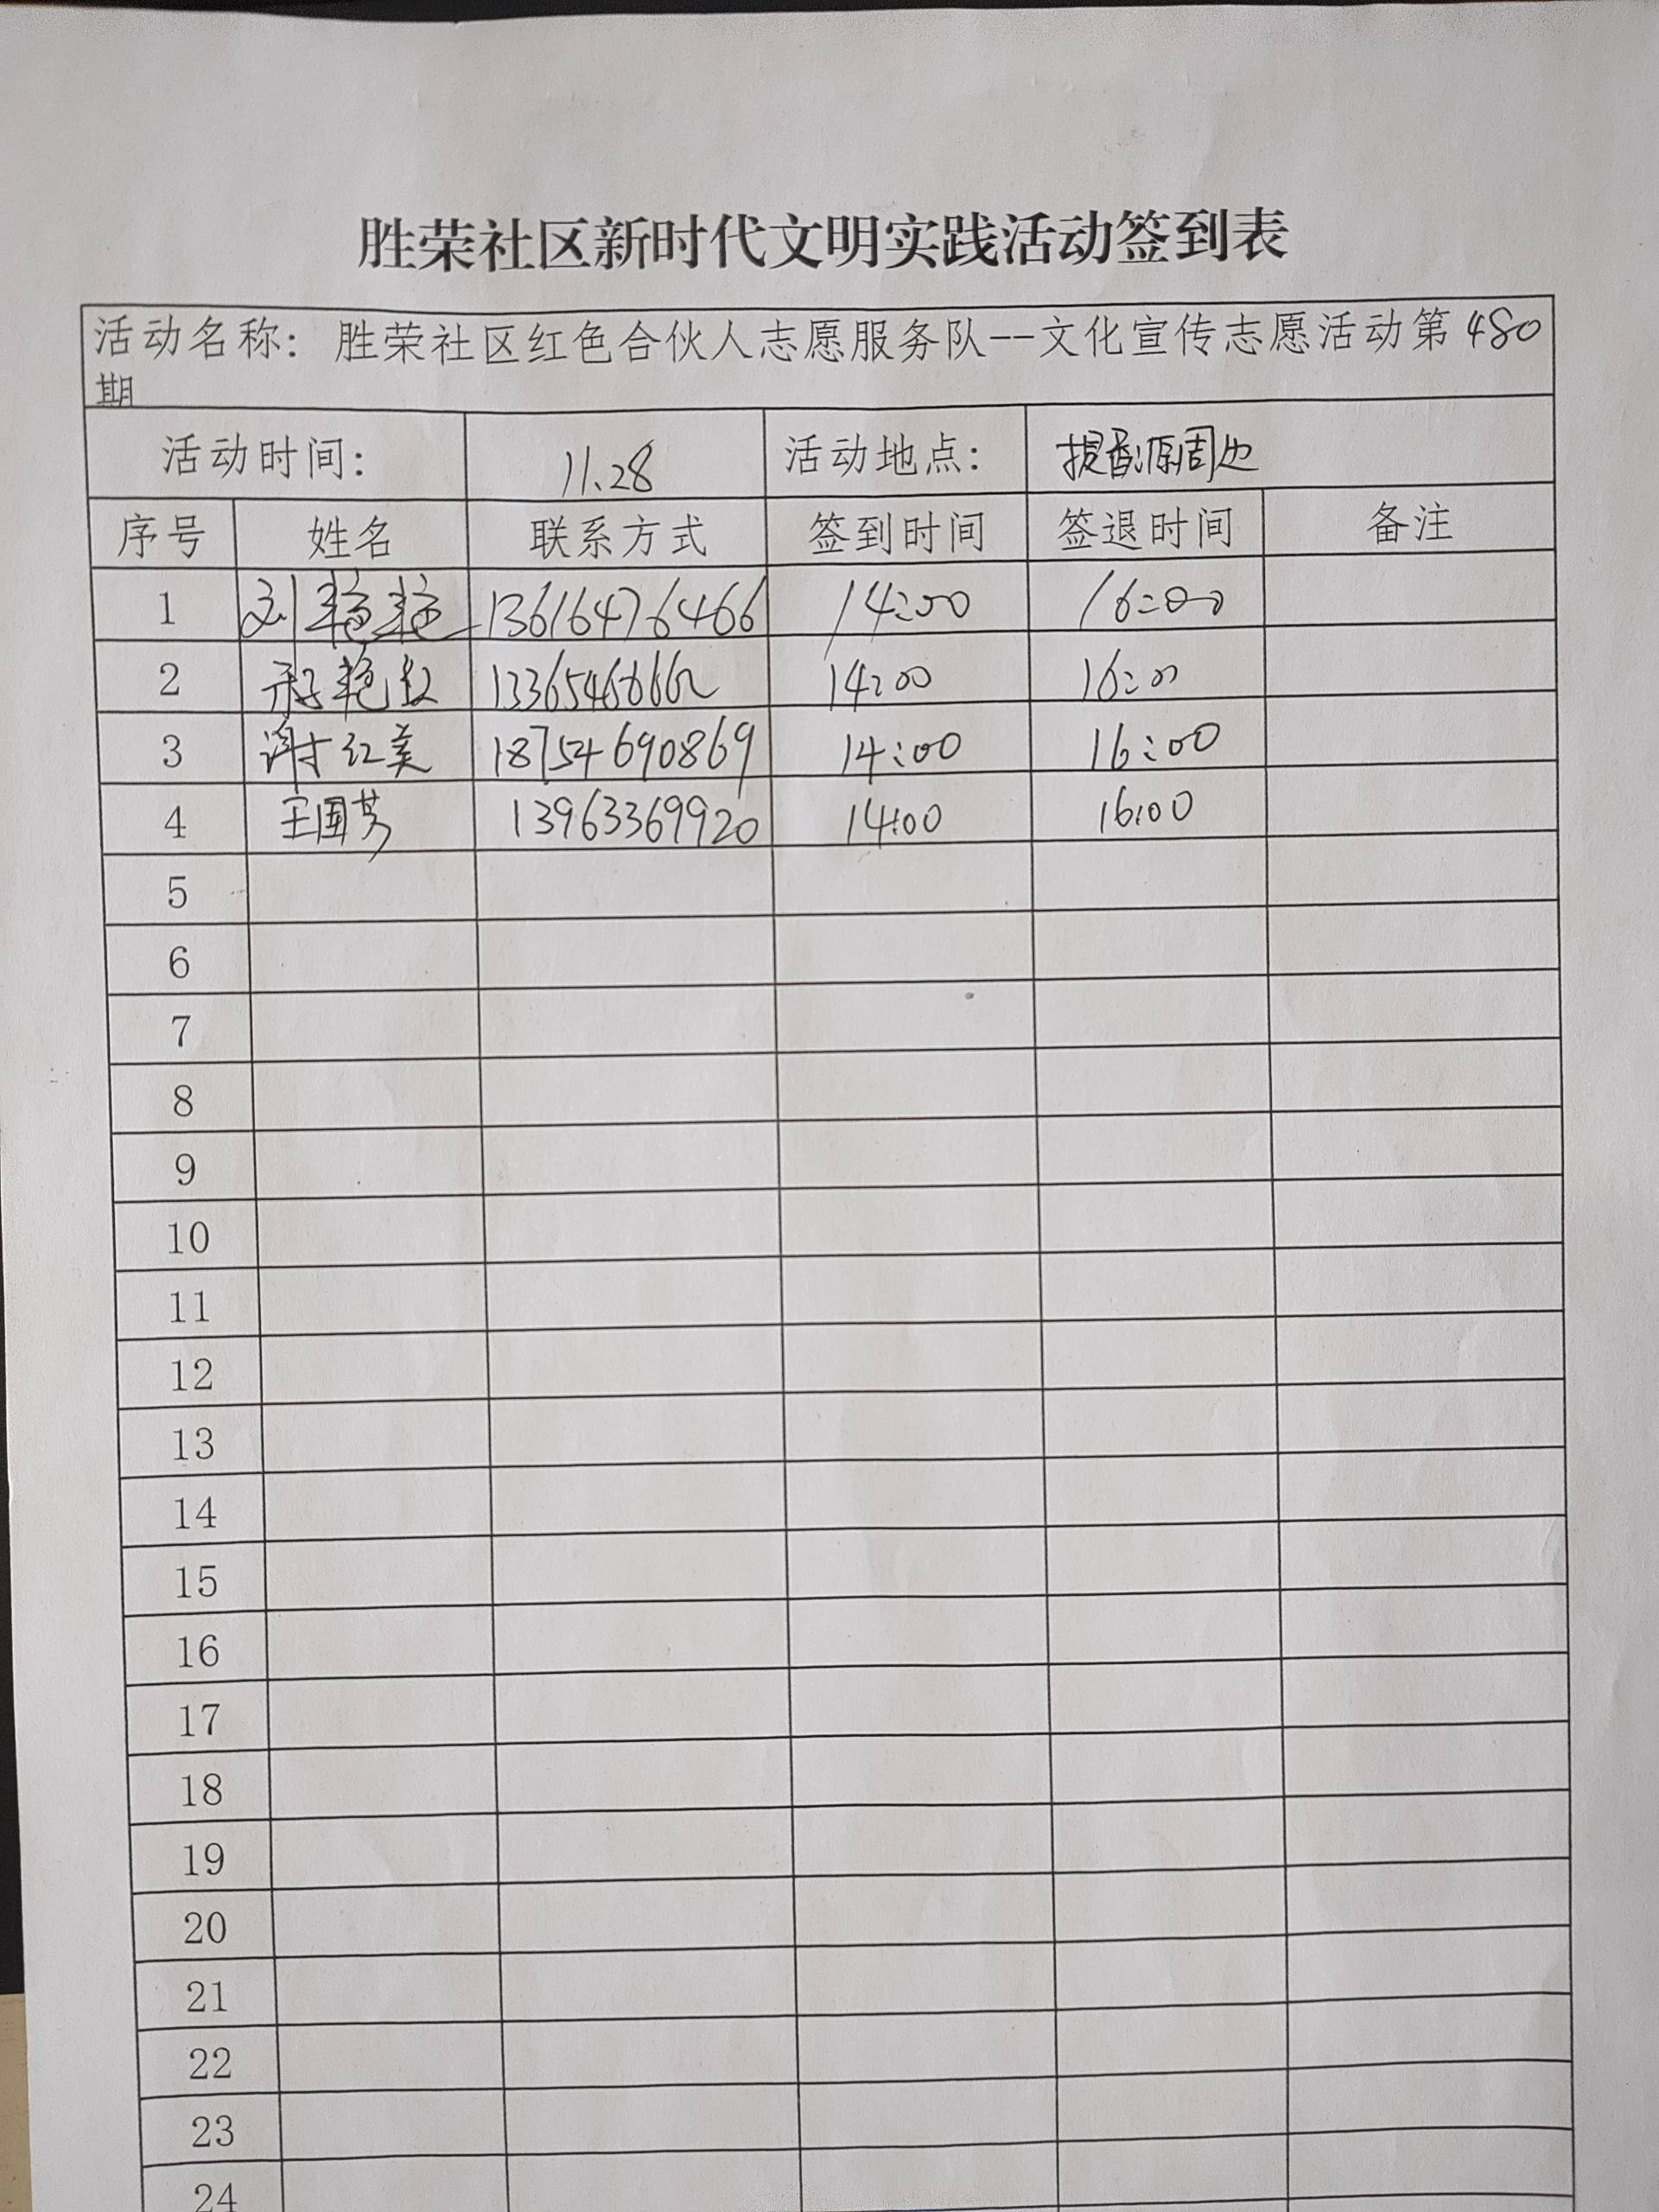 胜荣社区新时代文明实践活动签到表
活动名称: 胜荣社区红色合伙人志愿服务队--文化宣传志愿活动第480
期
活动时间: 11.28 活动地点: 提香源周边
序号 姓名 联系方式 签到时间 签退时间 备注
1 刘艳艳 13616476466 14:00 16:00
2 艳红 14:00 16:00
3 谢红美 18754690869 14:00 16:00
4 王国芳 13963369920 14:00 16:00
5
6
7
8
9
10
11
12
13
14
15
16
17
18
19
20
21
22
23
24